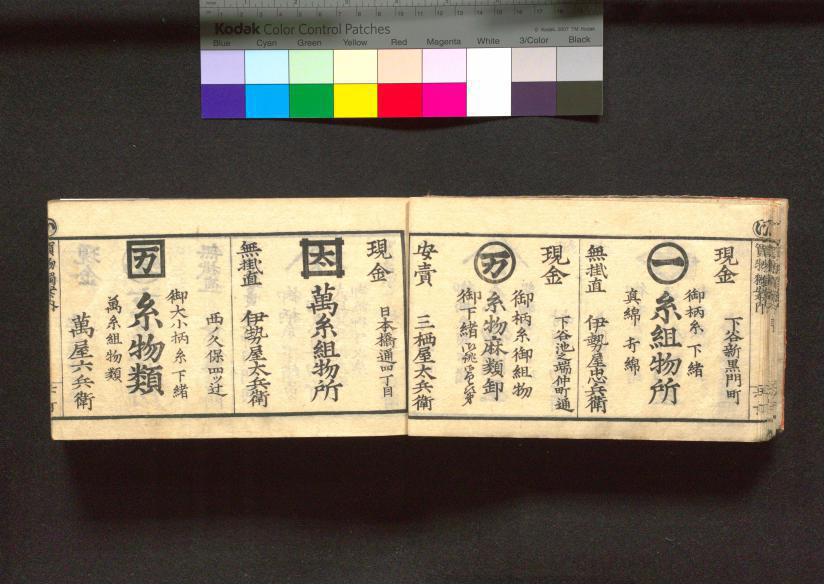 Kodak Color Control Patches
© Kodak, 2007 TM: Kodak
Blue Cyan Green Yellow Red Magenta White 3/Color Black
現金
下谷新黒門町
一
御柄糸 下緒
糸組物所
真綿
無掛直
伊勢屋忠兵衛
現金
下谷池之端仲町通
万
御柄糸御組物
糸物麻類卸
御下緒
安賣
三栖屋太兵衛
現金
日本橋通四丁目
太
萬糸組物所
無掛直
伊勢屋太兵衛
西ノ久保四ツ辻
御大小柄糸下緒
万
糸物類
萬糸組物類
萬屋六兵衛